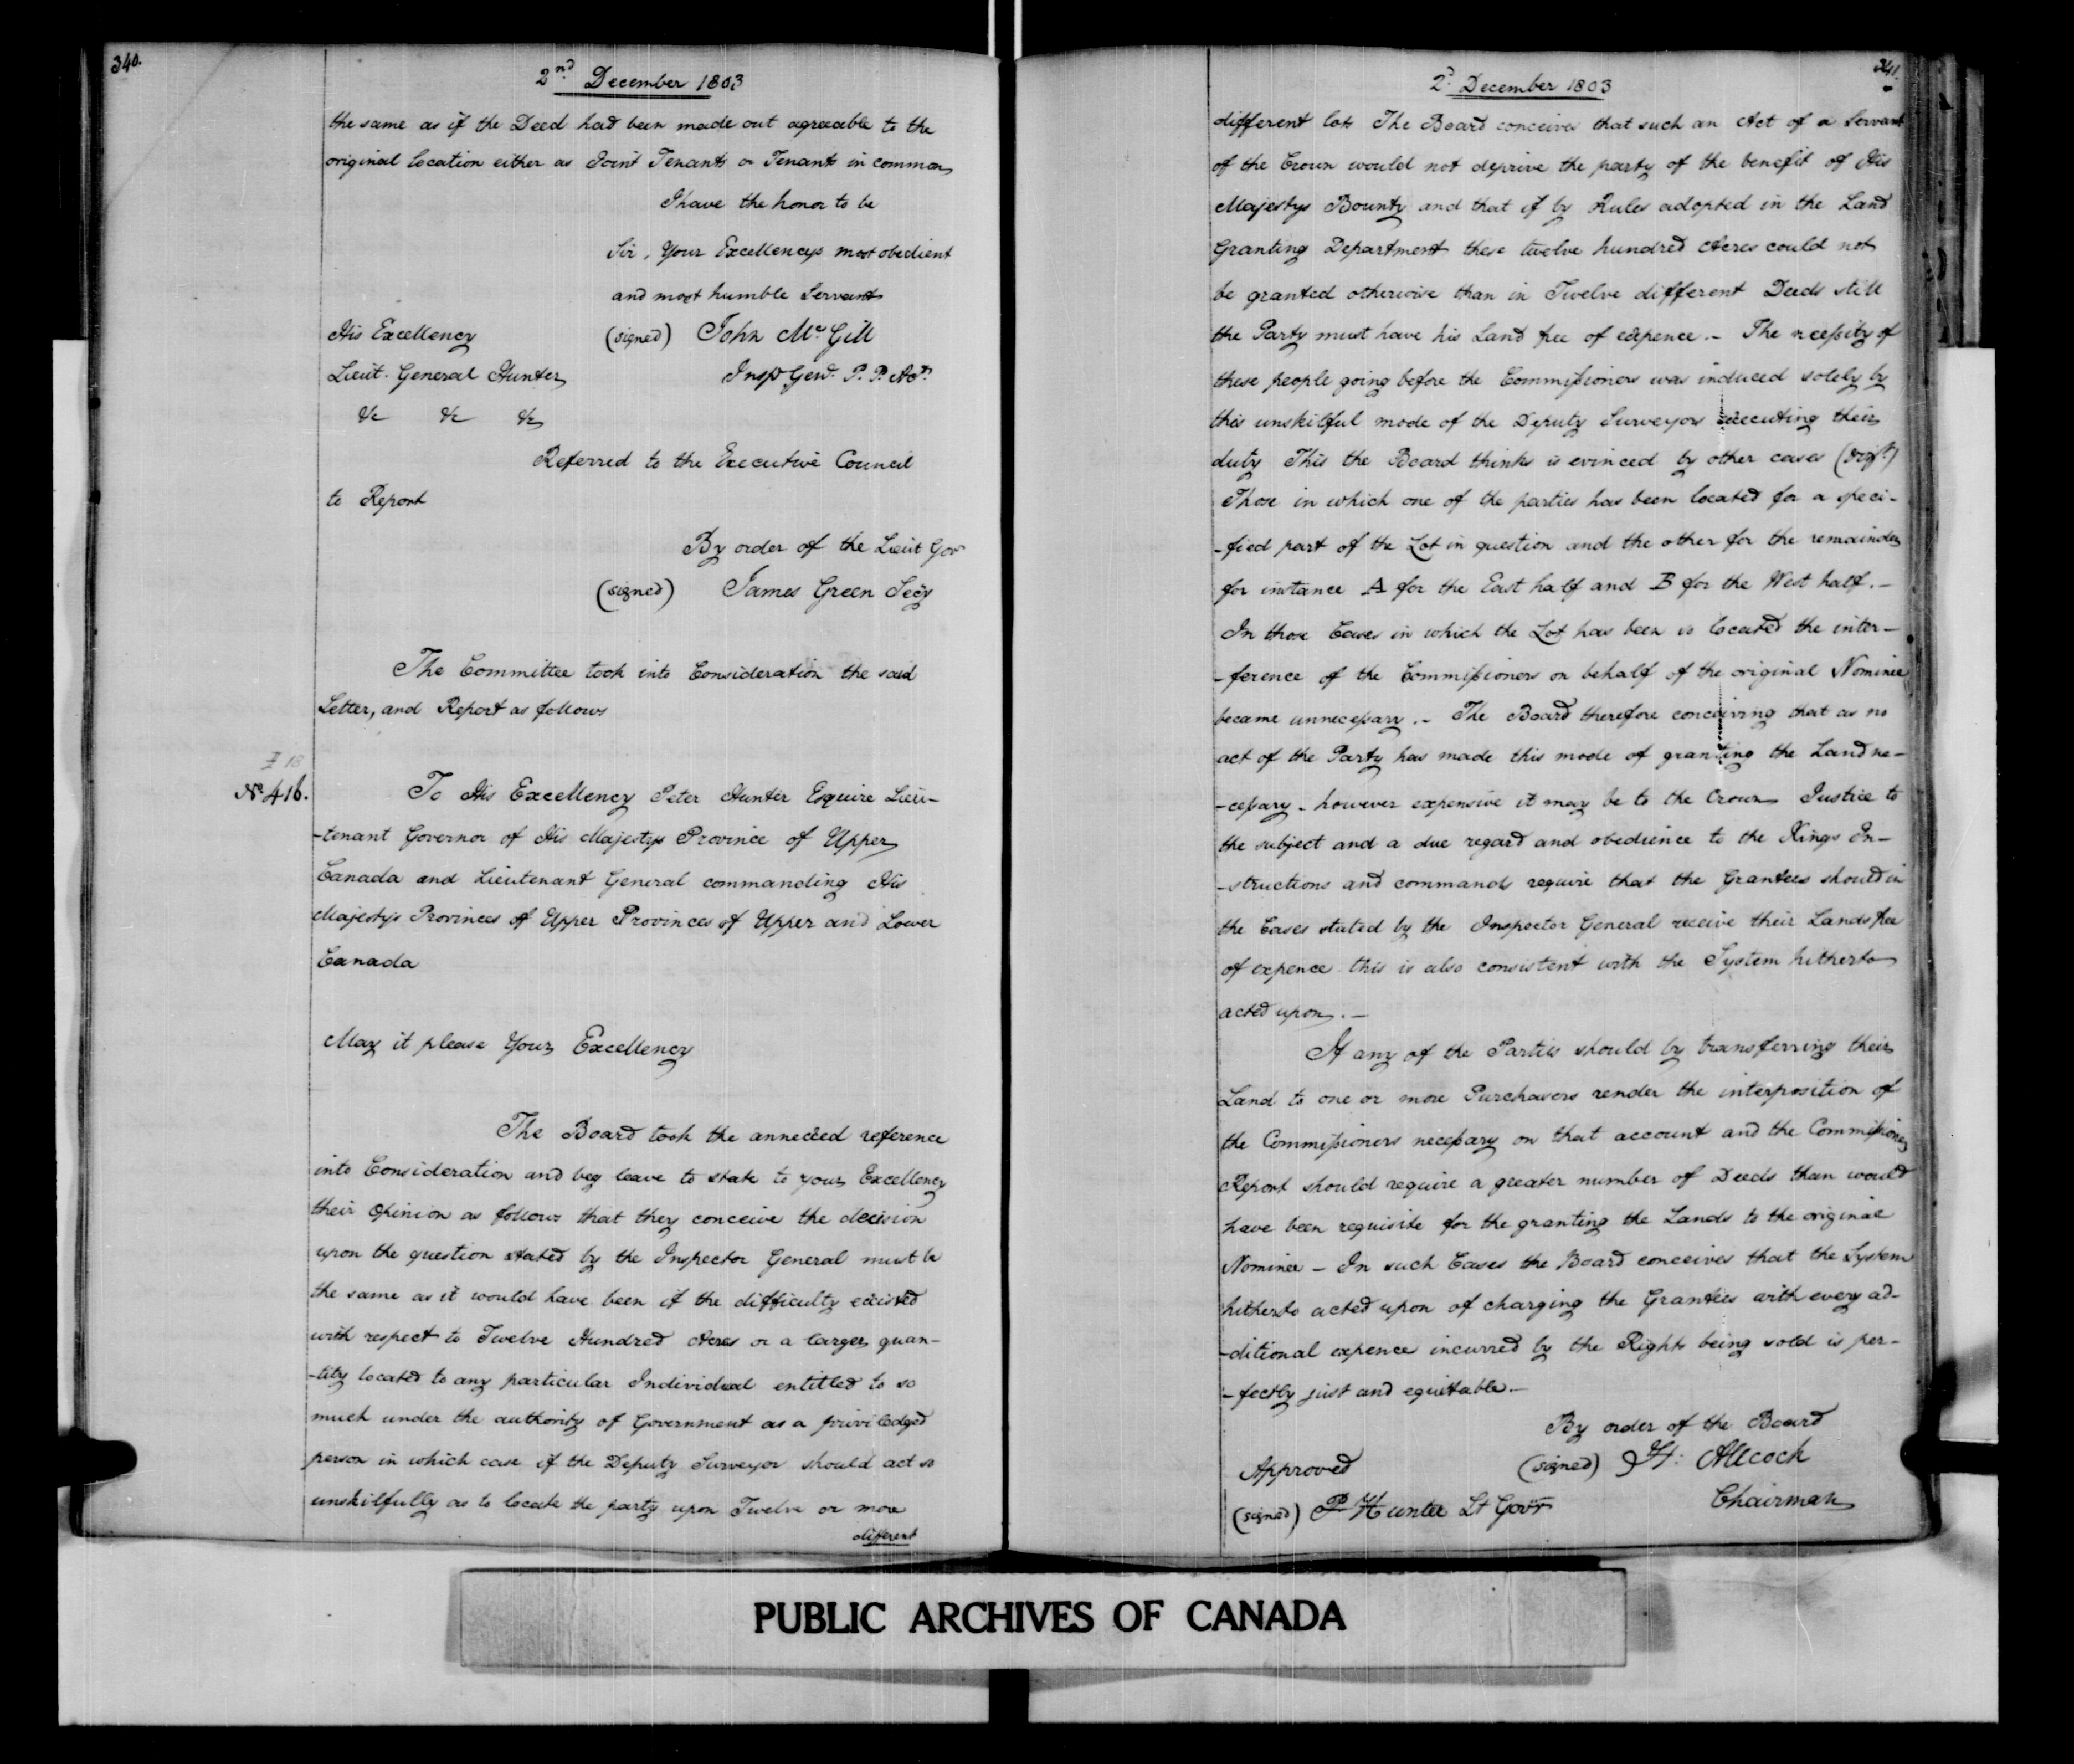 340.
2nd December 1803
the same as if the Deed had been made out agreeable to the
original location either as Joint Tenants or Tenants in common
I have the honor to be
Sir, Your Excellencys most obedient
and most humble Servant
His Excellency (signed) John McGill
Lieut. General Hunter Inspr Genl. P. P. Acts.
&c &c &c
Referred to the Executive Council
to Report
By order of the Lieut Govr
(signed) James Green Secy
The Committee took into Consideration the said
Letter, and Report as follows
No. 416.
To His Excellency Peter Hunter Esquire Lieu-
-tenant Governor of His Majestys Province of Upper
Canada and Lieutenant General commanding His
Majestys Provinces of Upper Provinces of Upper and Lower
Canada
May it please Your Excellency
The Board took the annexed reference
into Consideration and beg leave to state to your Excellency
their Opinion as follows that they conceive the decision
upon the question stated by the Inspector General must be
the same as it would have been if the difficulty existed
with respect to Twelve Hundred Acres or a larger quan-
-tity located to any particular Individual entitled to so
much under the authority of Government as a priviledged
person in which case if the Deputy Surveyor should act so
unskilfully as to locate the party upon Twelve or more
different
341.
2d. December 1803
different lots The Board conceives that such an Act of a Servant
of the Crown would not deprive the party of the benefit of His
Majestys Bounty and that if by Rules adopted in the Land
Granting Department these twelve hundred Acres could not
be granted otherwise than in Twelve different Deeds still
the Party must have his Land free of expence.- The necessity of
these people going before the Commissioners was induced solely by
this unskilful mode of the Deputy Surveyors executing their
duty This the Board thinks is evinced by other cases (vizt.)
Those in which one of the parties has been located for a speci-
-fied part of the Lot in question and the other for the remainder
for instance A for the East half and B for the West half.-
In those Cases in which the Lot has been so located the inter-
-ference of the Commissioners on behalf of the original Nominee
became unnecessary.- The Board therefore conceiving that as no
act of the Party has made this mode of granting the Land ne-
-cessary - however expensive it may be to the Crown Justice to
the subject and a due regard and obedience to the Kings In-
-structions and commands require that the Grantees should in
the Cases stated by the Inspector General receive their Lands free
of expence this is also consistent with the System hitherto
acted upon.-
If any of the Parties should by transferring their
Land to one or more Purchasers render the interposition of
the Commissioners necessary on that account and the Commissioners
Report should require a greater number of Deeds than would
have been requisite for the granting the Lands to the original
Nominee - In such Cases the Board conceives that the System
hitherto acted upon of charging the Grantees with every ad-
-ditional expence incurred by the Rights being sold is per-
-fectly just and equitable.-
By order of the Board
Approved (signed) H: Allcock
(signed) P Hunter Lt Govr Chairman
PUBLIC ARCHIVES OF CANADA